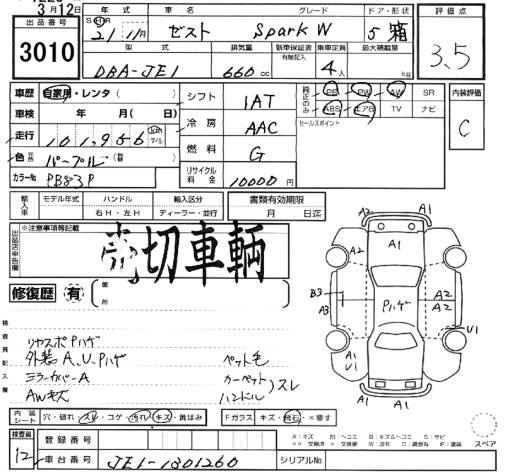 3月12日
出品番号
3010
年式
車名
グレード
ドア・形状
評価点
21 11月
ゼスト
Spark W
5 箱
3.5
型式
排気量
新車保証書
有無記入
乗車定員
最大積載量
DBA-JE1
660 cc
4人
kg
車歴 自家用・レンタ( )
車検 年 月( 日)
走行 101,956 km マイル
色 パープル
カラーNo PB83P
シフト 1AT
冷房 AAC
燃料 G
リサイクル料金 10000円
純正のみ
PS PW AW SR
ABS エアB TV ナビ
セールスポイント
内装評価
C
輸入車
モデル年式
ハンドル
右H・左H
輸入区分
ディーラー・並行
書類有効期限
月 日迄
※注意事項等記載
売切車輌
修復歴 有
箇所
検査員記入欄
リヤスポPハゲ
外装A、U、Pハゲ
ミラーカバーA
AWキズ
ペット毛
カーペット
ハンドル
スレ
A2 A1
A1
A2
B3
A3
Pハゲ
A2
A2
U1
A1
A1
U1
A1
スペア
内装シート
穴・破れ・スレ・コゲ・汚れ・キズ・黄ばみ
Fガラス キズ・飛石・×要す
A:キズ U:ヘコミ B:キズ&ヘコミ S:サビ
××:交換済 ×:交換要 W:波有 C:腐食有 P:塗装
検査員
12
登録番号
車台番号
JE1-1301260
シリアルNo